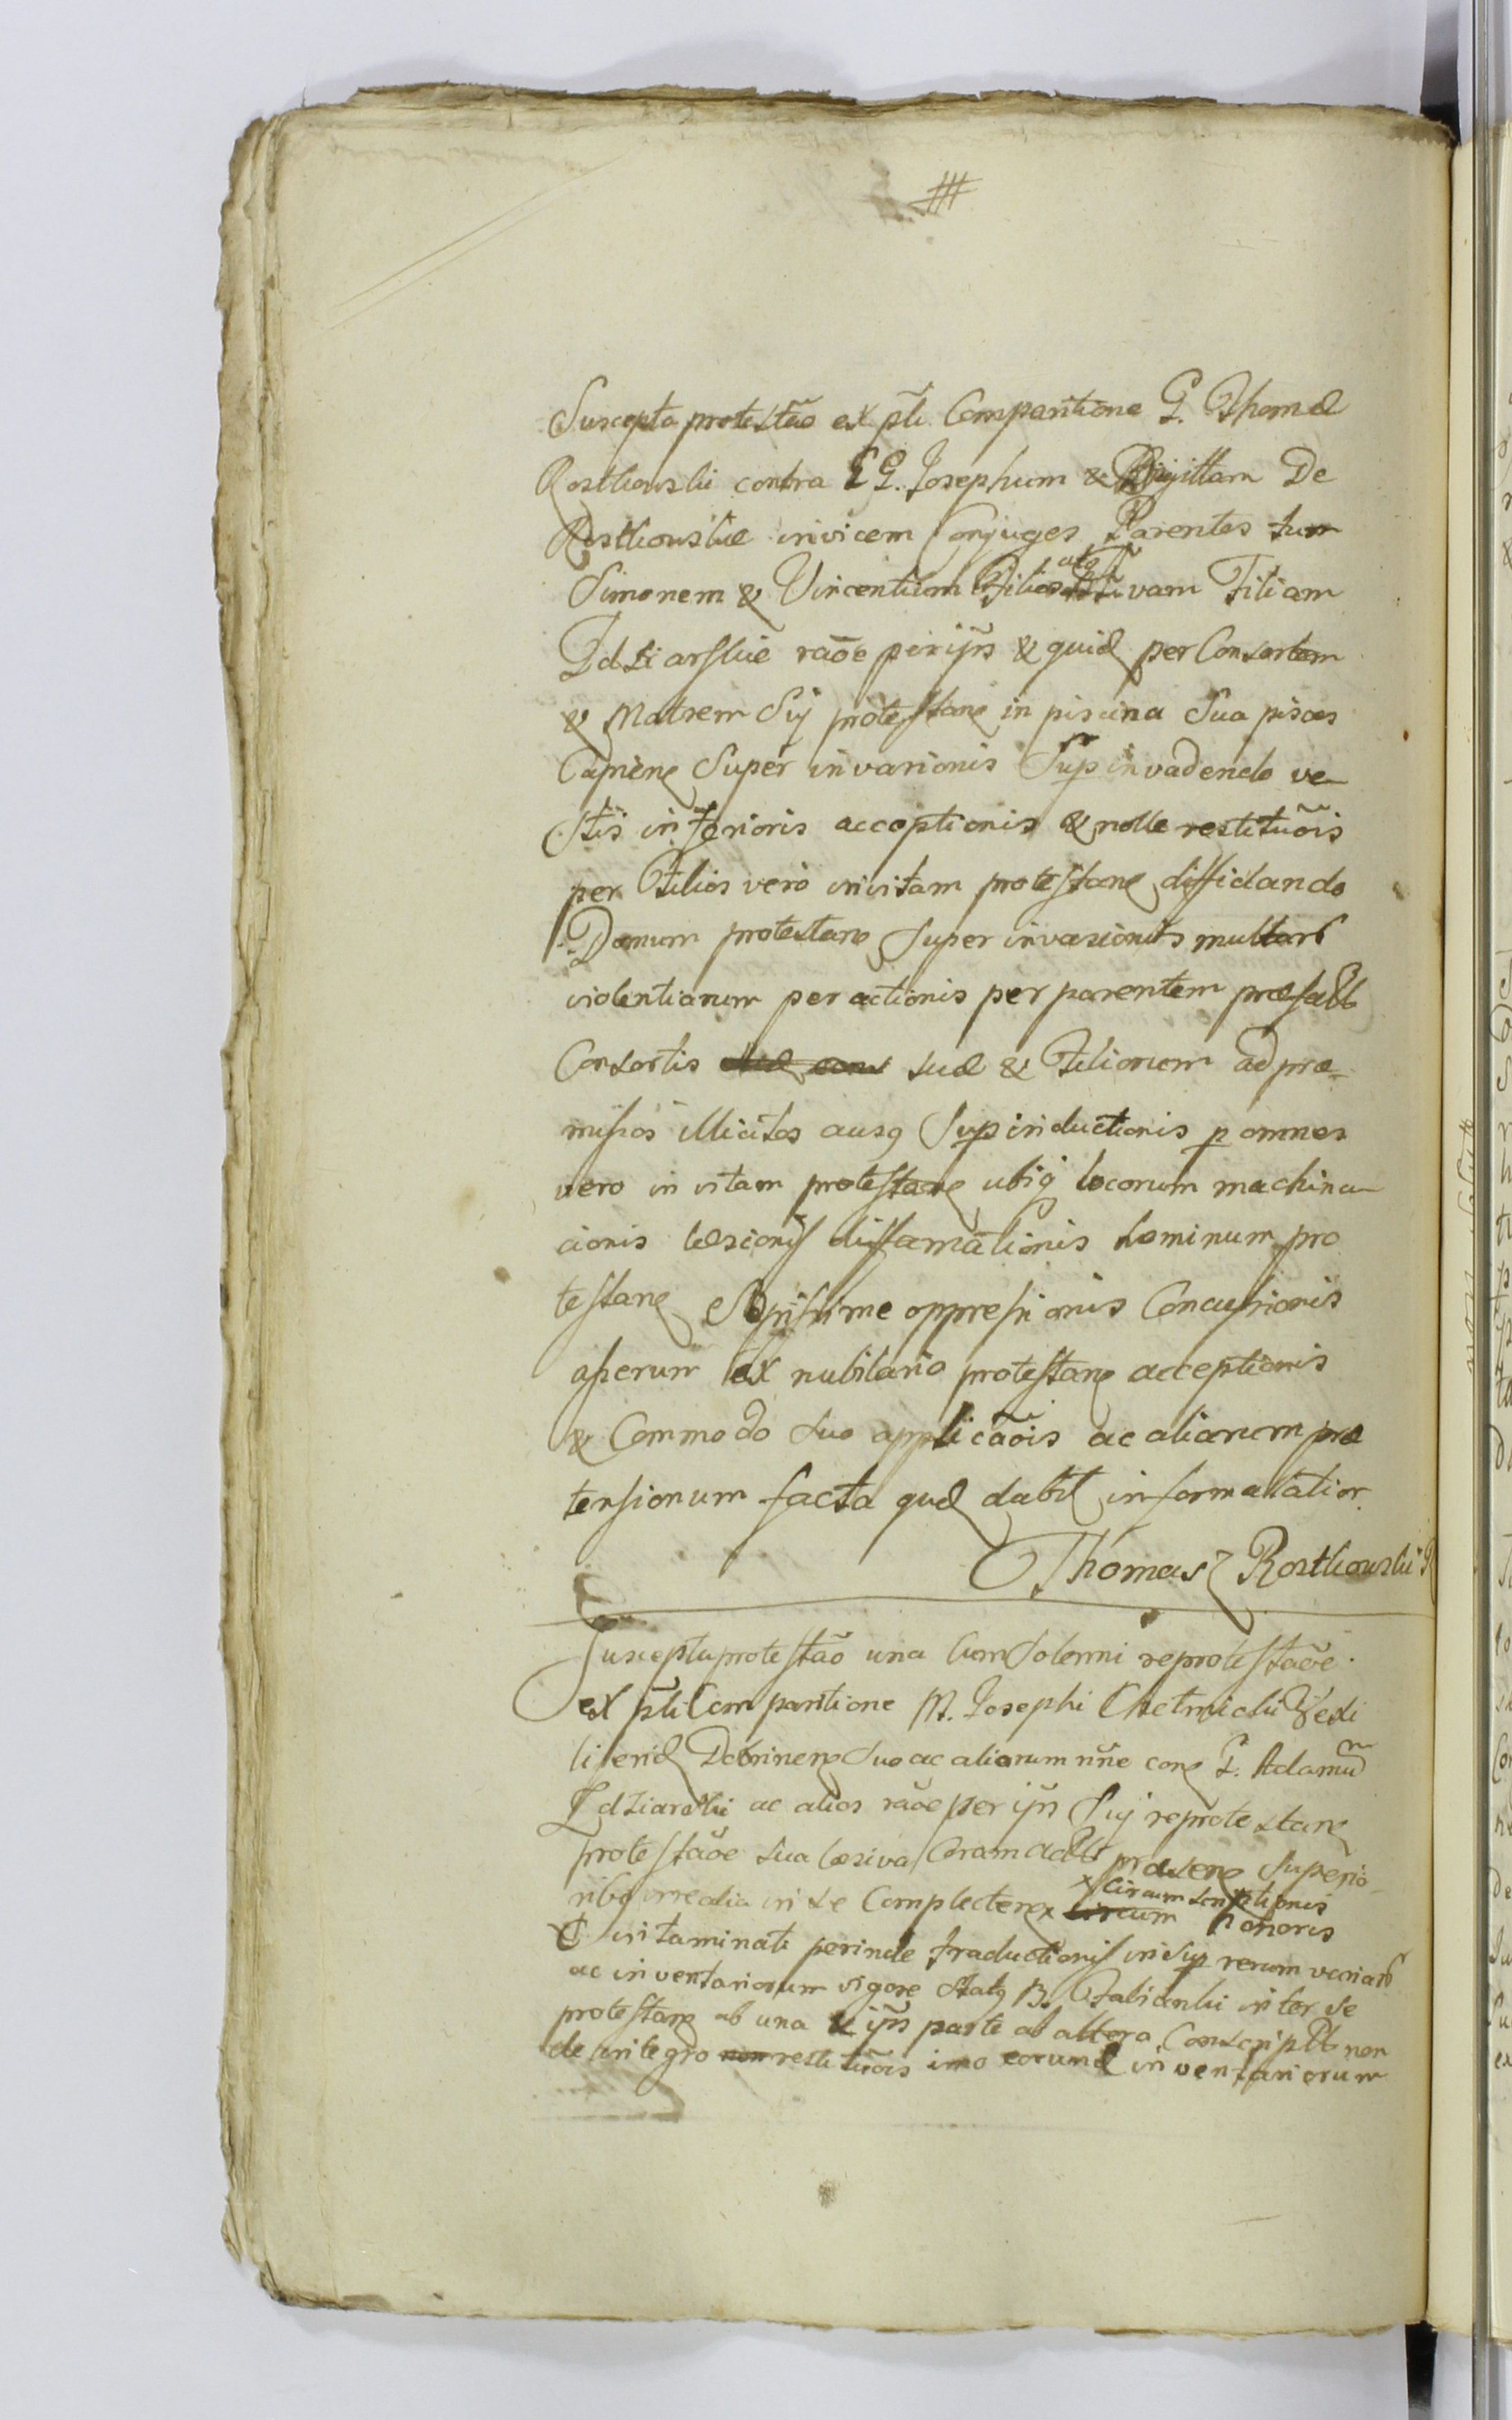 Suscepta protestão ex pli Comparitione G. Thomæ
Rostkowski contra GG. Josephum & Brigittam De
Rostkowskie invicem Conjuges Parentes tum
Simonem & Vincentium Filios vam Filiam
Idziarskie raõe perijs & quia per Consortem
& Matrem Sij protestane in piscina Sua pisces
Capiene Super invasionis Sup invadendo ve
stis inferioris acceptionis & nolle restituõis
per Filios vero invitam protestane diffidando
Domum protestane Super invasionis multarb
violentiarum peractionis per parentem præfatb
Consortis suæ & Filiorum ad præ
missos illicitos ausq Sup inductionis p omnes
vero in vitam protestane ubiq locorum machina
cionis læsionis diffamationis hominum pro
testane oppressionis Concussionis
asserum ex nubilario protestane acceptionis
& Commodo suo applicãois ac aliarum præ
tensionum facta quæ dabit informatior
Thomas Rostkowski
Suscepta protestão una Cum Solenni reprotestaõe
ex pli Comparitione M. Josephi Chetmicki Vexi
liferid Dobrinens Suo ac aliorum nñe cons G. Adamũ
Idziarski ac alios raõe perijs Sij reprotestane
protestaõe sua læsiva Coram actb præsene Superio
ribq irrealia in se Complectene x circum honoris
x Circumscriptionis
intaminati perinde traductionis in Sup rerum variarb
ac inventariorum vigore Statq B. Falienski inter se
protestane ab una & ijs parte ab altera Conscriptb non
de integro non restituõis imo eorund inventariorum